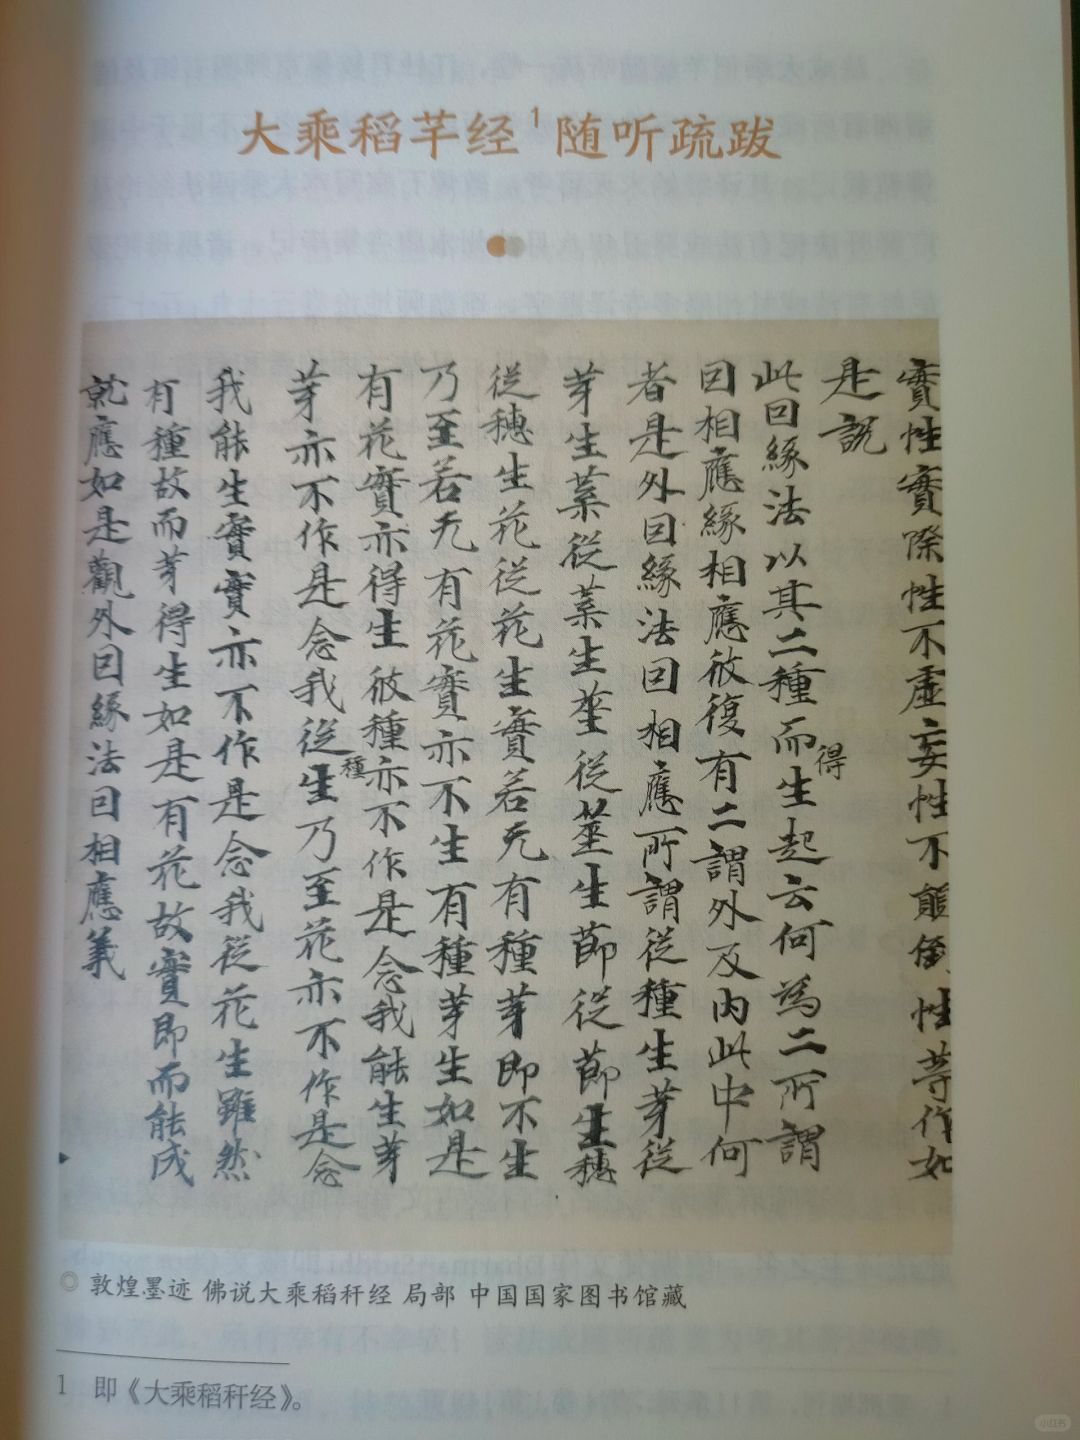 大乘稻芊经1随听疏跋
實性實際性不虛妄性不顛倒性等作如
是說
此因緣法以其二種而得生起云何為二所謂
因相應緣相應彼復有二謂外及內此中何
者是外因緣法因相應所謂從種生芽從
芽生葉從葉生莖從莖生節從節生穗
從穗生花從花生實若无有種芽即不生
乃至若无有花實亦不生有種芽生如是
有花實亦得生彼種亦不作是念我能生芽
芽亦不作是念我從種生乃至花亦不作是念
我能生實實亦不作是念我從花生雖然
有種故而芽得生如是有花故實即而能成
就應如是觀外因緣法因相應義
◎ 敦煌墨迹 佛说大乘稻秆经 局部 中国国家图书馆藏
1 即《大乘稻秆经》。
小红书